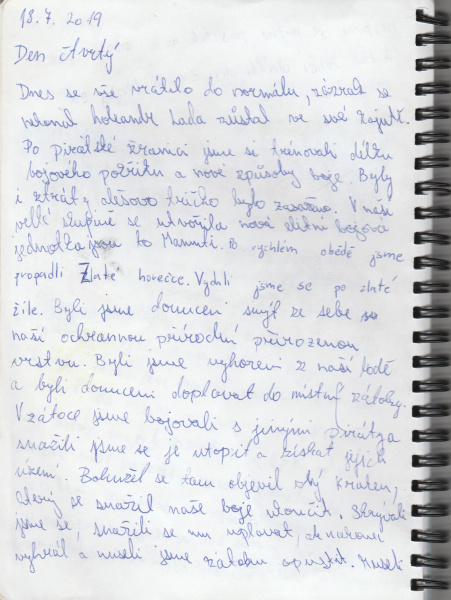 18.7.2019
Den čtvrtý
Dnes se vše vrátilo do normálu, zázrak se
nekonal Lada zůstal ve své
Po pirátské žranici jsme si trénovali délku
bojového pokřiku a nové způsoby boje. Byly
i ztráty alešovo tričko bylo zasaženo. V naší
velké skupině se utvořila nová elitní bojová
jednotka jsou to Mamuti. Po rychlém obědě jsme
propadli Zlaté horečce. Vydali jsme se po zlaté
žíle. Byli jsme donuceni smýt ze sebe
naší ochrannou přírodní přirozenou
vrstvu. Byli jsme vyhozeni z naší lodě
a byli donuceni doplavat do místní zátoky.
V zátoce jsme bojovali s jinými piráty a
snažili jsme se je utopit a získat jejich
území. Bohužel se tam objevil zlý kraken,
který se snažil naše boje ukončit. Skrývali
jsme se, snažili se mu uplavat, ale nakonec
vyhrál a museli jsme zátoku opustit. Museli